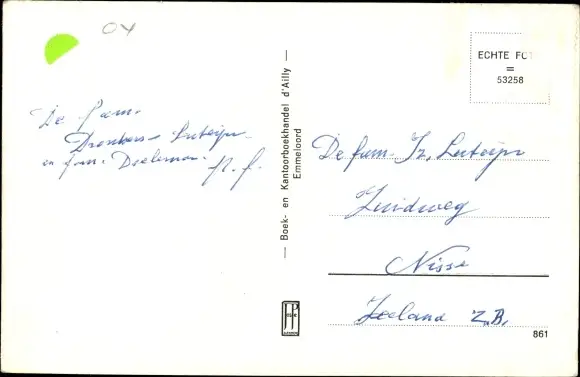 OY
De fam.
Dronkers - Luteijn
en fam. Doeleman.
p. f.
— Boek- en Kantoorboekhandel d'Ailly —
Emmeloord
ECHTE FO
=
53258
De fam. Iz. Luteijn
Zuidweg
Nisse
Zeeland Z.B.
861